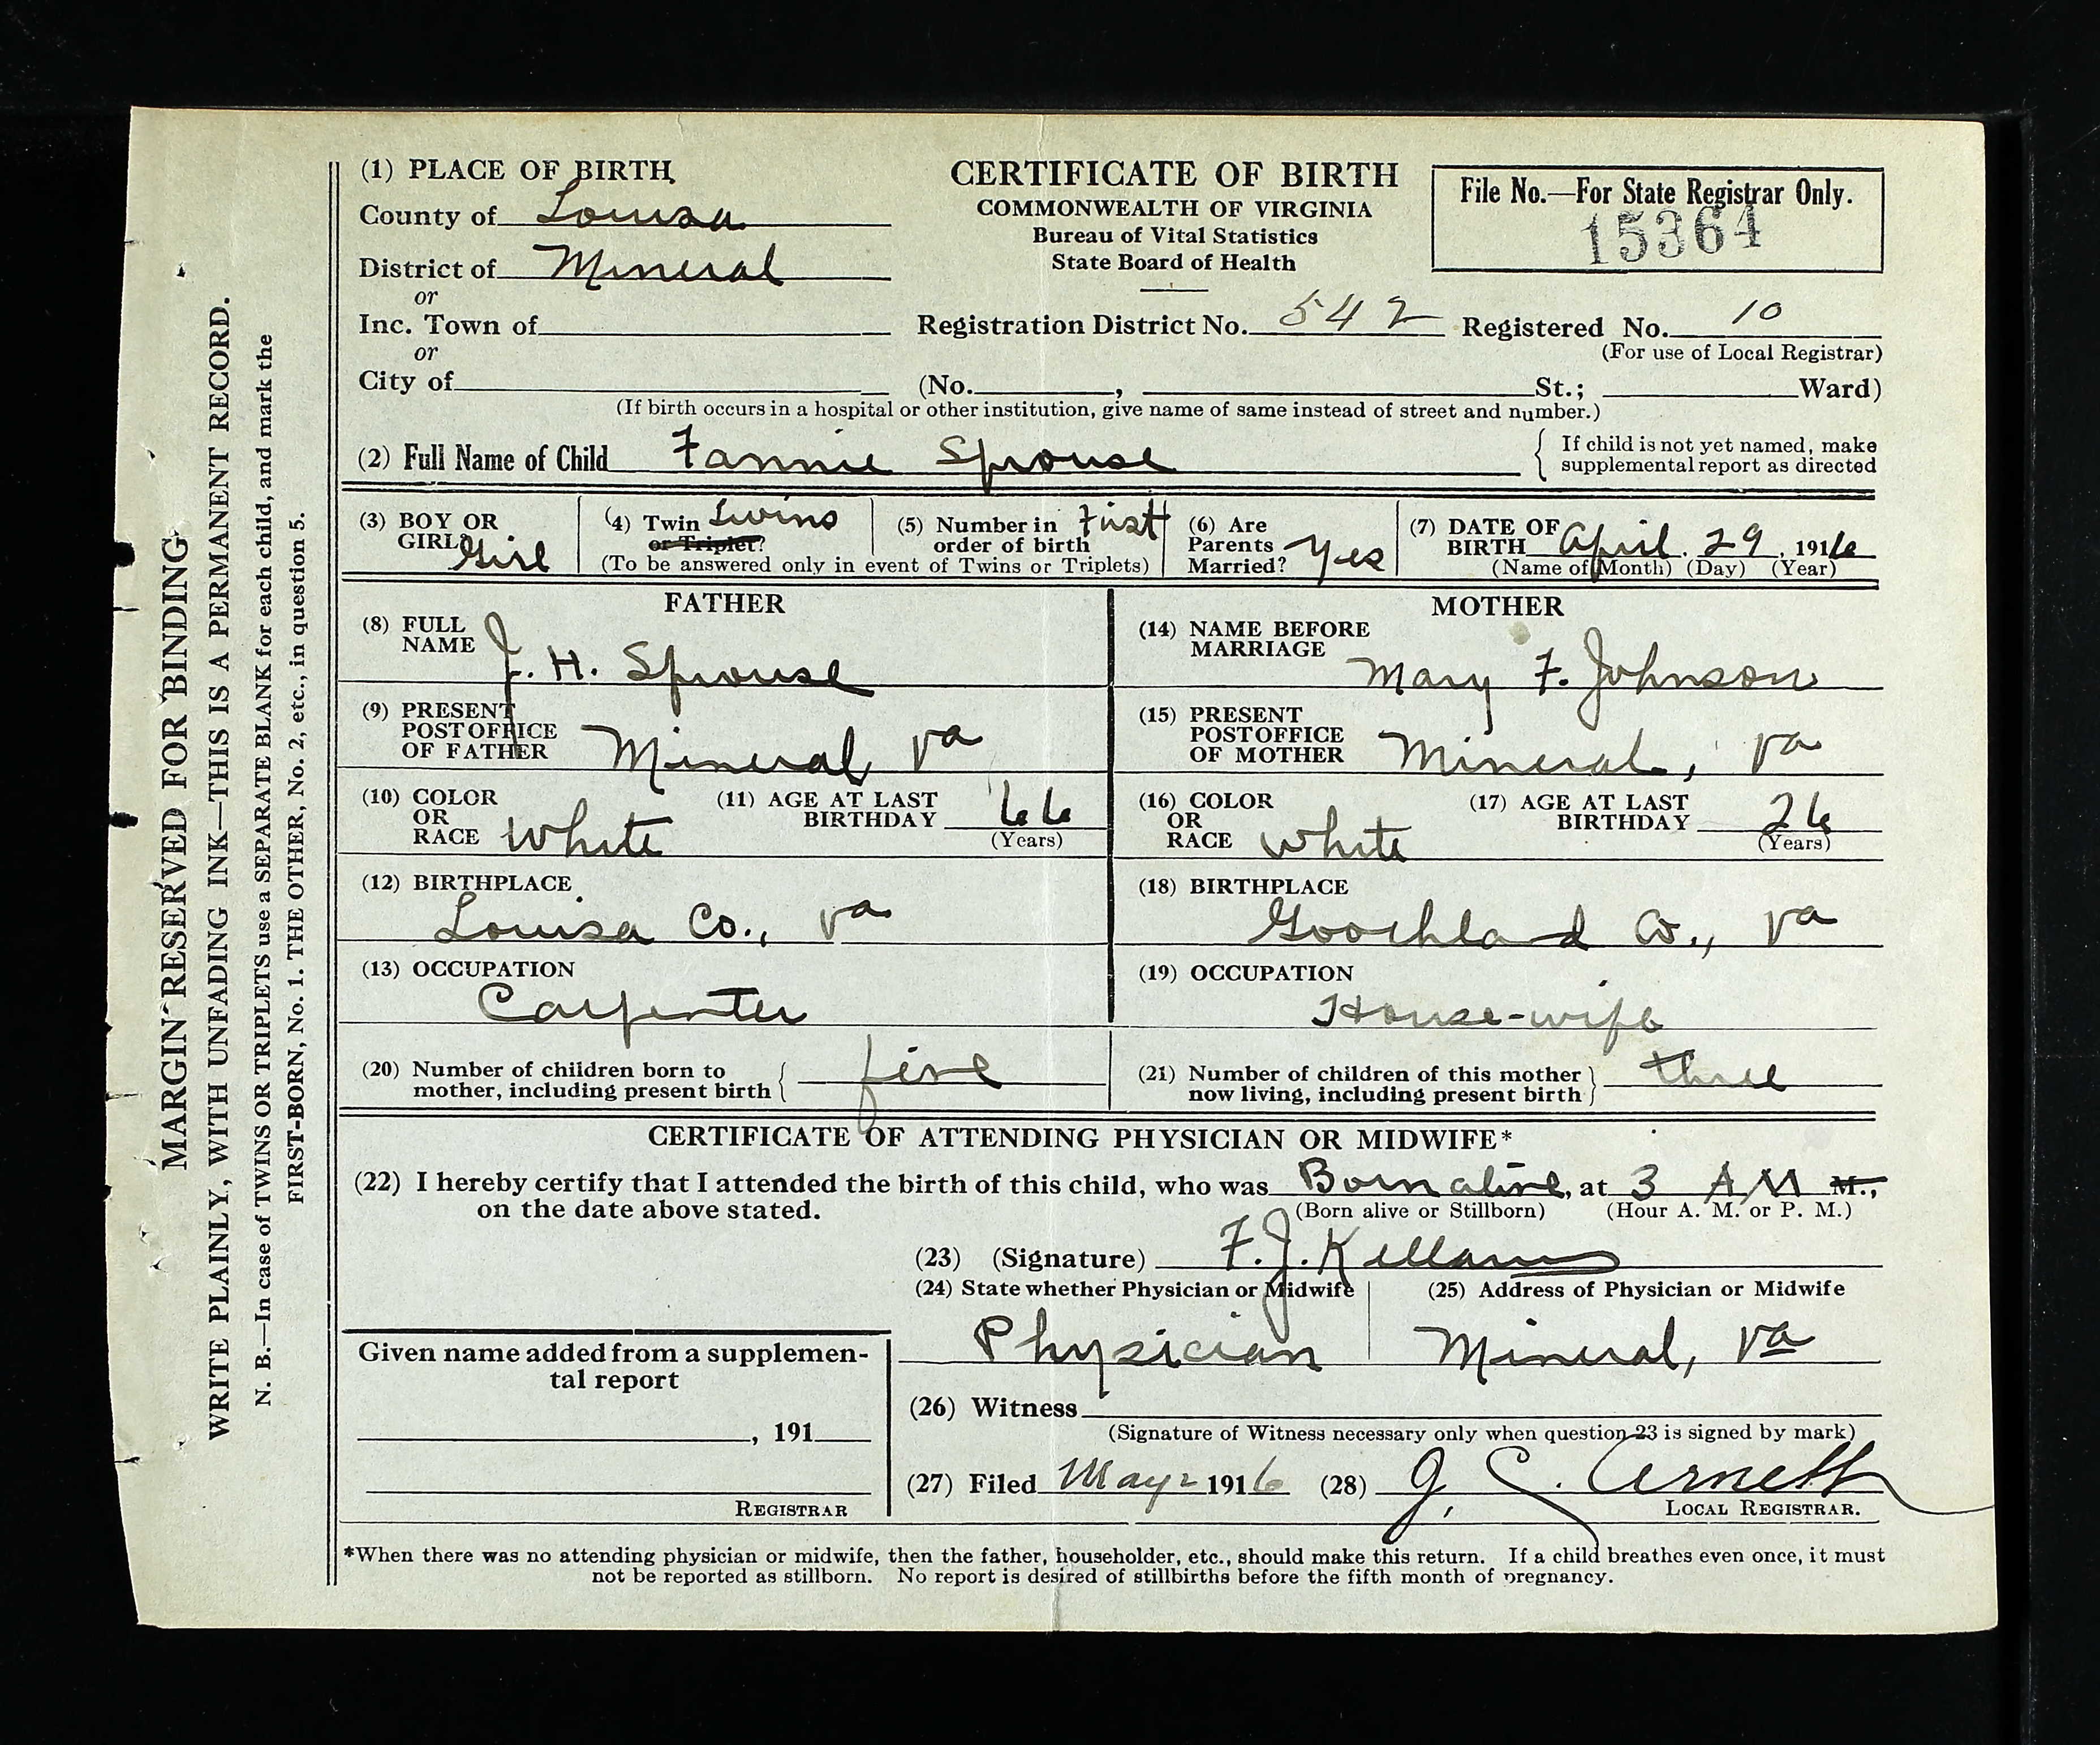 MARGIN RESERVED FOR BINDING
WRITE PLAINLY, WITH UNFADING INK—THIS IS A PERMANENT RECORD.
N. B.—In case of TWINS OR TRIPLETS use a SEPARATE BLANK for each child, and mark the
FIRST-BORN, No. 1. THE OTHER, No. 2, etc., in question 5.
(1) PLACE OF BIRTH
County of Louisa
District of Mineral
or
Inc. Town of
or
City of
CERTIFICATE OF BIRTH
COMMONWEALTH OF VIRGINIA
Bureau of Vital Statistics
State Board of Health
File No.—For State Registrar Only.
15364
Registration District No. 542 Registered No. 10
(For use of Local Registrar)
(No. , St.; Ward)
(If birth occurs in a hospital or other institution, give name of same instead of street and number.)
(2) Full Name of Child Fannie Sprouse
If child is not yet named, make
supplemental report as directed
(3) BOY OR
GIRL? Girl
(4) Twin Twins
or Triplet?
(5) Number in First
order of birth
(To be answered only in event of Twins or Triplets)
(6) Are
Parents
Married? Yes
(7) DATE OF
BIRTH April. 29, 1916
(Name of Month) (Day) (Year)
FATHER
(8) FULL
NAME J. H. Sprouse
(9) PRESENT
POSTOFFICE
OF FATHER Mineral Va
(10) COLOR
OR
RACE White
(11) AGE AT LAST
BIRTHDAY 66
(Years)
(12) BIRTHPLACE
Louisa Co., Va
(13) OCCUPATION
Carpenter
MOTHER
(14) NAME BEFORE
MARRIAGE
Mary F. Johnson
(15) PRESENT
POSTOFFICE
OF MOTHER Mineral, Va
(16) COLOR
OR
RACE White
(17) AGE AT LAST
BIRTHDAY 26
(Years)
(18) BIRTHPLACE
Goochland Co., Va
(19) OCCUPATION
House-wife
(20) Number of children born to
mother, including present birth five
(21) Number of children of this mother
now living, including present birth three
CERTIFICATE OF ATTENDING PHYSICIAN OR MIDWIFE*
(22) I hereby certify that I attended the birth of this child, who was Born alive, at 3 AM M.,
on the date above stated. (Born alive or Stillborn) (Hour A. M. or P. M.)
(23) (Signature) F. J. Kellam
(24) State whether Physician or Midwife
Physician
(25) Address of Physician or Midwife
Mineral, Va
Given name added from a supplemen-
tal report
, 191
REGISTRAR
(26) Witness
(Signature of Witness necessary only when question 23 is signed by mark)
(27) Filed May 2 1916 (28) J. C. Arnett
LOCAL REGISTRAR.
*When there was no attending physician or midwife, then the father, householder, etc., should make this return. If a child breathes even once, it must
not be reported as stillborn. No report is desired of stillbirths before the fifth month of pregnancy.